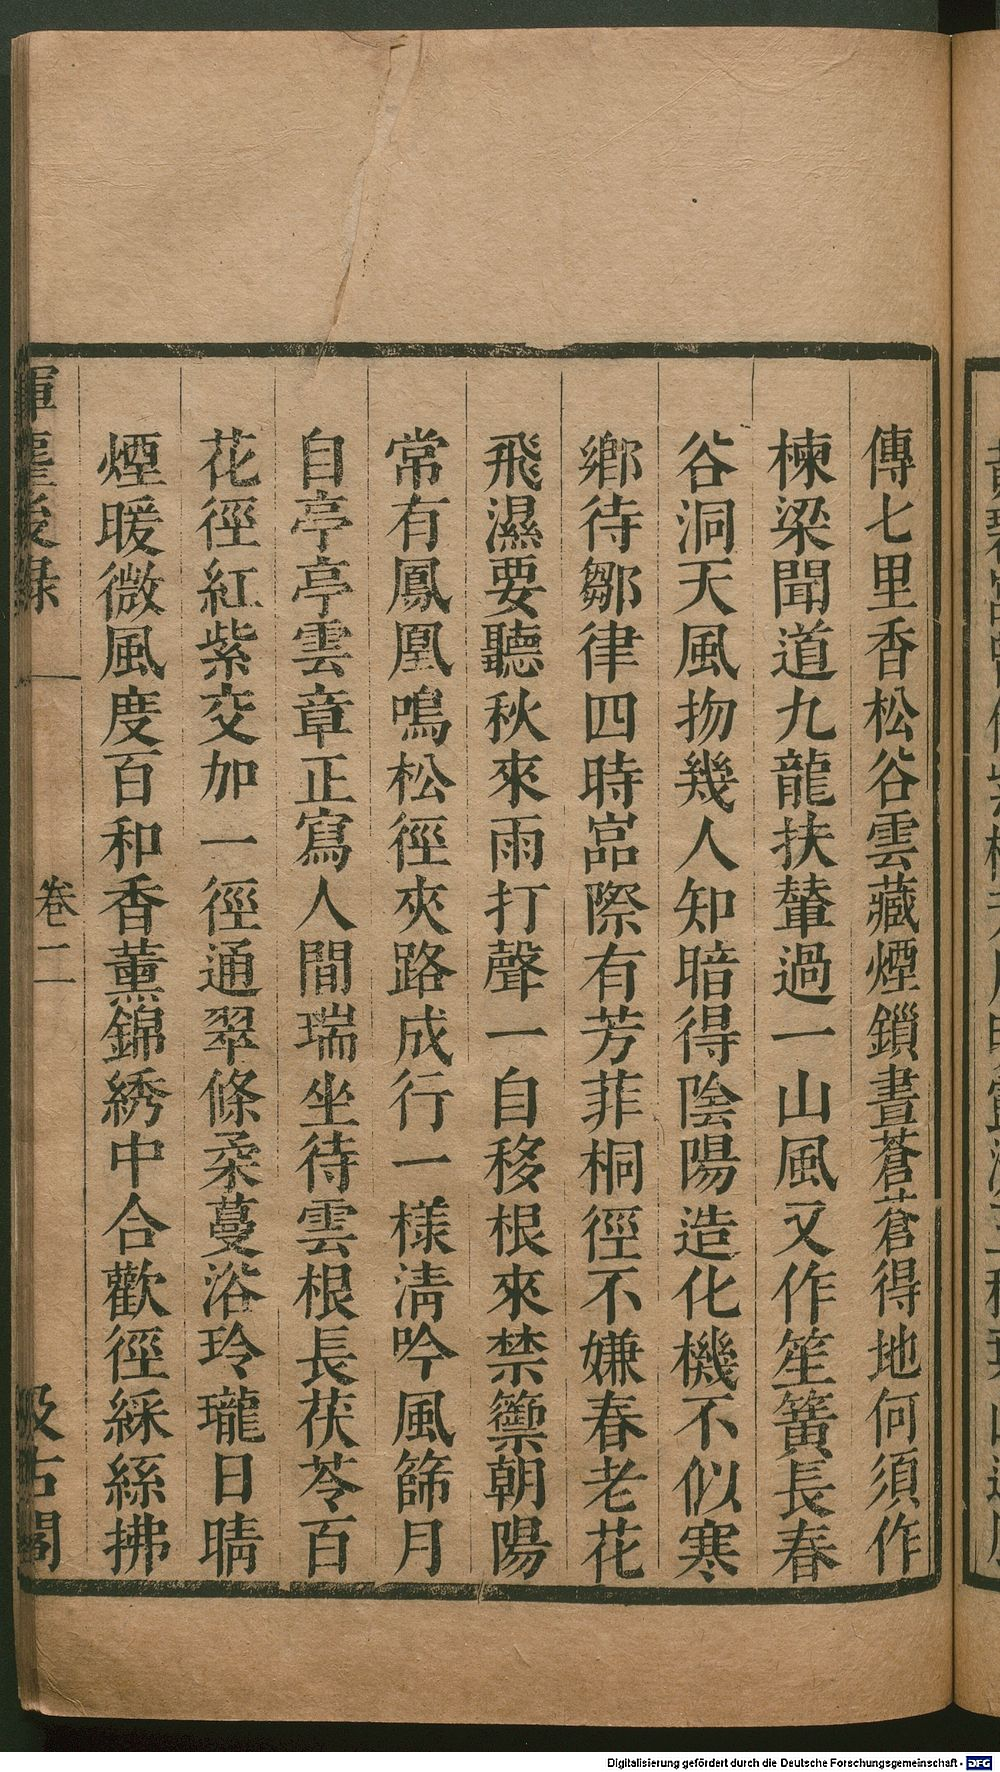 傳七里香松谷雲藏煙鎖晝蒼蒼得地何須作
棟梁聞道九龍扶輦過一山風又作笙簧長春
谷洞天風物幾人知暗得陰陽造化機不似寒
鄉待鄒律四時嵓際有芳菲桐徑不嫌春老花
飛濕要聽秋來雨打聲一自移根來禁籞朝陽
常有鳳凰鳴松徑夾路成行一樣清吟風篩月
自亭亭雲章正寫人間瑞坐待雲根長茯苓百
花徑紅紫交加一徑通翠條柔蔓浴玲瓏日晴
煙暖微風度百和香薰錦綉中合歡徑綵絲拂
揮麈後錄
卷二
汲古閣
Digitalisierung gefördert durch die Deutsche Forschungsgemeinschaft - DFG